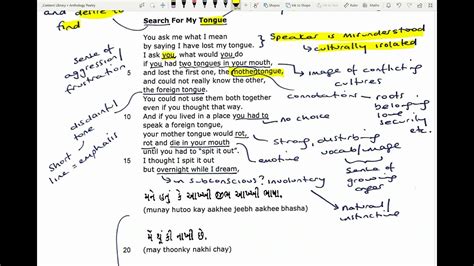 and desire to
find
Search For My Tongue
You ask me what I mean
by saying I have lost my tongue.
I ask you, what would you do
if you had two tongues in your mouth,
5 and lost the first one, the mother tongue,
and could not really know the other,
the foreign tongue.
You could not use them both together
even if you thought that way.
10 And if you lived in a place you had to
speak a foreign tongue,
your mother tongue would rot,
rot and die in your mouth
until you had to "spit it out".
15 I thought I spit it out
but overnight while I dream,
મને હતું કે આખ્ખી જીભ આખ્ખી ભાષા,
(munay hutoo kay aakhee jeebh aakhee bhasha)
મેં થૂંકી નાખી છે.
20 (may thoonky nakhi chay)
sense of
aggression/
frustration
disdainful
tone
short
line = emphasis
Speaker is misunderstood
culturally isolated
image of conflicting
cultures
connotations - roots
belonging
love
security
etc.
no choice
strong, disturbing
vocab/image
emotive
sense of
growing
anger
subconscious? involuntary
natural/
instinctive